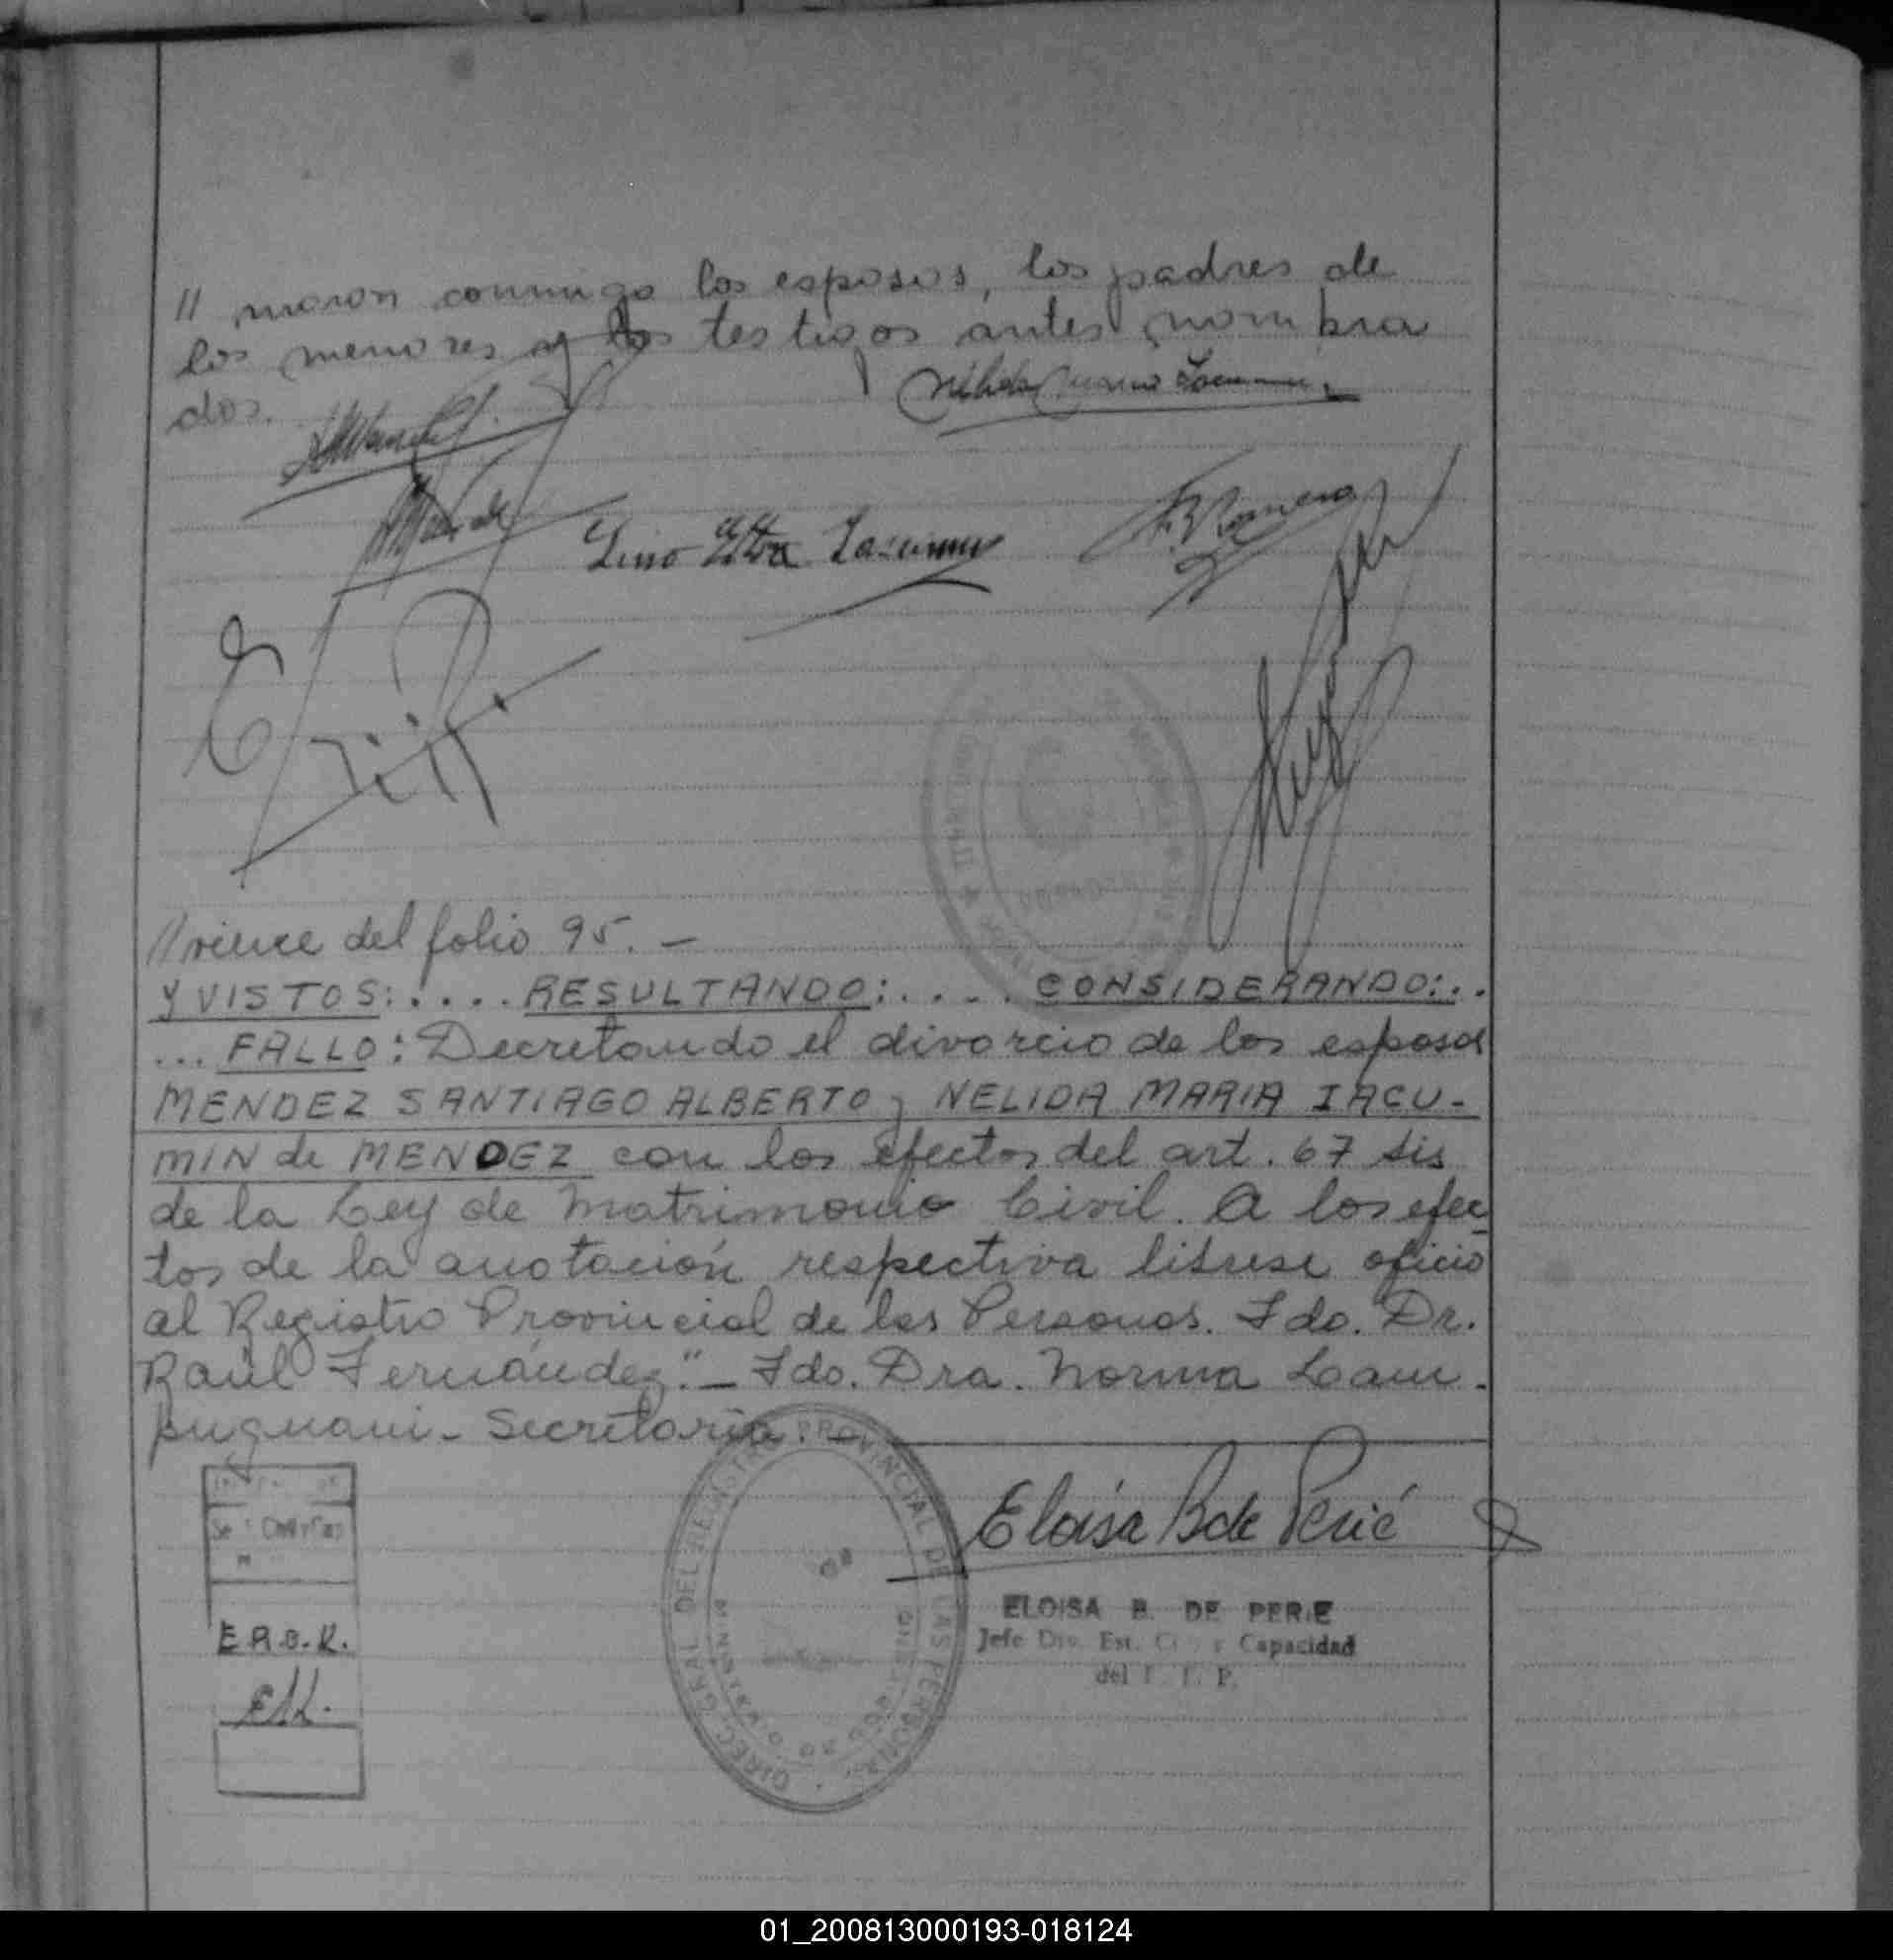 // maron conmigo los esposos, los padres de
los menores y los testigos antes nombra
dos.
Lino Iacumin
//viene del folio 95. —
Y VISTOS: .... RESULTANDO: .... CONSIDERANDO: ..
... FALLO: Decretando el divorcio de los esposos
MENDEZ SANTIAGO ALBERTO y NELIDA MARIA IACU-
MIN de MENDEZ con los efectos del art. 67 bis
de la Ley de Matrimonio Civil. A los efec
tos de la anotación respectiva líbrese oficio
al Registro Provincial de las Personas. Fdo. Dr.
Raúl Fernández." — Fdo. Dra. Norma Lam-
pugnani - Secretaria. —
DIREC. GRAL. DEL REGISTRO PROVINCIAL DE LAS PERSONAS
MINISTERIO DE GOBIERNO
Eloisa B de Perié
ELOISA B. DE PERIE
Jefe Div. Est. Capacidad
del P.
E.R.O.R.
01_200813000193-018124